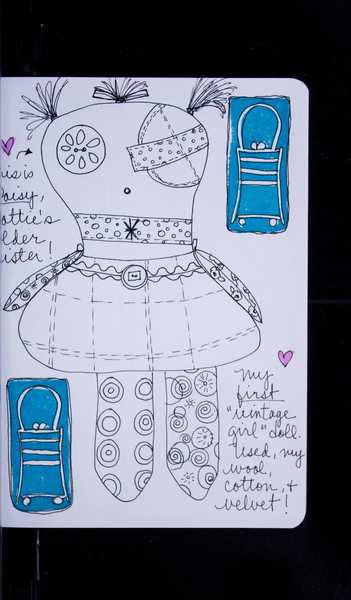 is is
aisy,
ottie's
lder
ister!
My
first
"vintage
girl" doll.
Used, my
wool,
cotton, &
velvet!